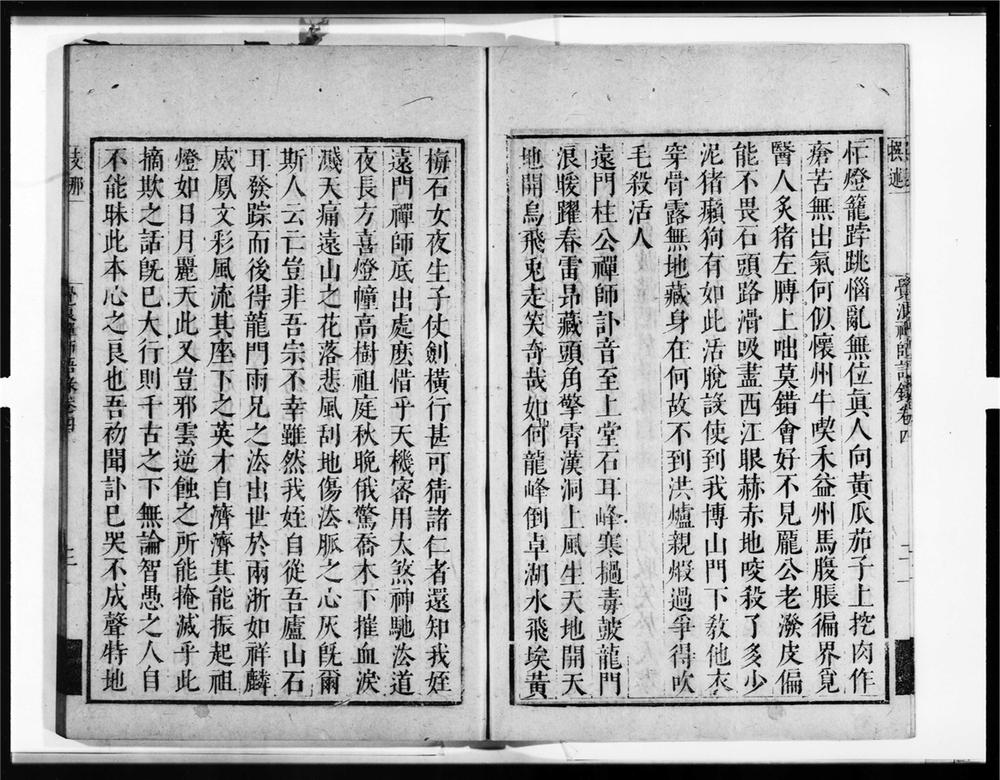 作燈籠踍跳惱亂無位真人向黃瓜茄子上挖肉作
瘡苦無出氣何似懷州牛喫禾益州馬腹脹徧界覓
醫人炙猪左膊上咄莫錯會好不見龐公老潑皮偏
能不畏石頭路滑吸盡西江眼赫赤地咬殺了多少
泥猪癩狗有如此活脫設使到我博山門下教他衣
穿骨露無地藏身在何故不到洪爐親煅過爭得吹
毛殺活人
遠門柱公禪師訃音至上堂石耳峰寒撾毒皷龍門
浪暖躍春雷昂藏頭角擎霄漢洞上風生天地開天
地開烏飛兎走笑奇哉如何龍峰倒卓湖水飛埃黃
梅石女夜生子仗劍橫行甚可猜諸仁者還知我姪
遠門禪師底出處麽惜乎天機審用太煞神馳法道
夜長方喜燈幢高樹祖庭秋晚俄驚喬木下摧血淚
濺天痛遠山之花落悲風刮地傷法脈之心灰旣爾
斯人云亡豈非吾宗不幸雖然我姪自從吾廬山石
耳發踪而後得龍門雨兄之法出世於兩浙如祥麟
威鳳文彩風流其座下之英才自濟濟其能振起祖
燈如日月麗天此又豈邪雲逆蝕之所能掩滅乎此
摘欺之話旣已大行則千古之下無論智愚之人自
不能昧此本心之良也吾初聞訃已哭不成聲特地
覺浪禪師語錄卷四
二
支那
覺浪禪師語錄卷四
三